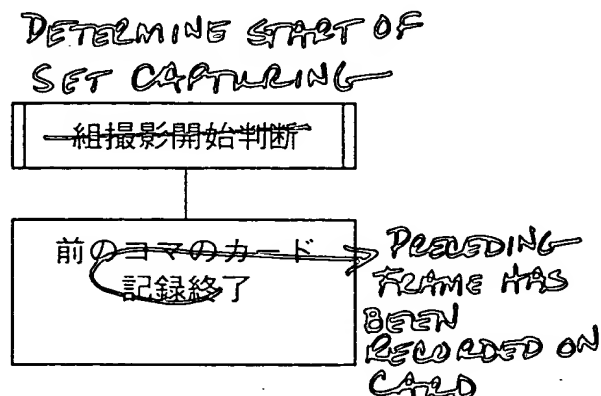 DETERMINE START OF
SET CAPTURING
組撮影開始判断
前のコマのカード
記録終了
PRECEDING
FRAME HAS
BEEN
RECORDED ON
CARD